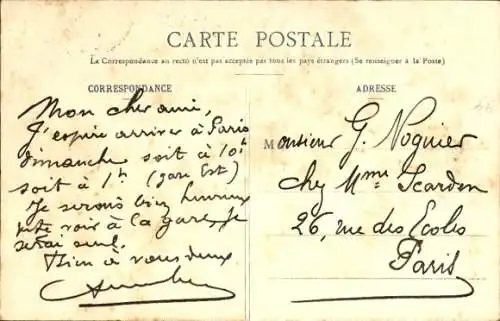 CARTE POSTALE
La Correspondance au recto n'est pas acceptée par tous les pays étrangers (Se renseigner à la Poste)
CORRESPONDANCE
Mon cher ami,
J'espère arriver à Paris
dimanche soit à 10h
soit à 1h (gare Est)
Je serais bien heureux
te voir à la gare, je
serai seul.
Bien à vous deux
ADRESSE
Monsieur G. Noguier
chez Mme
26, rue des Ecoles
Paris